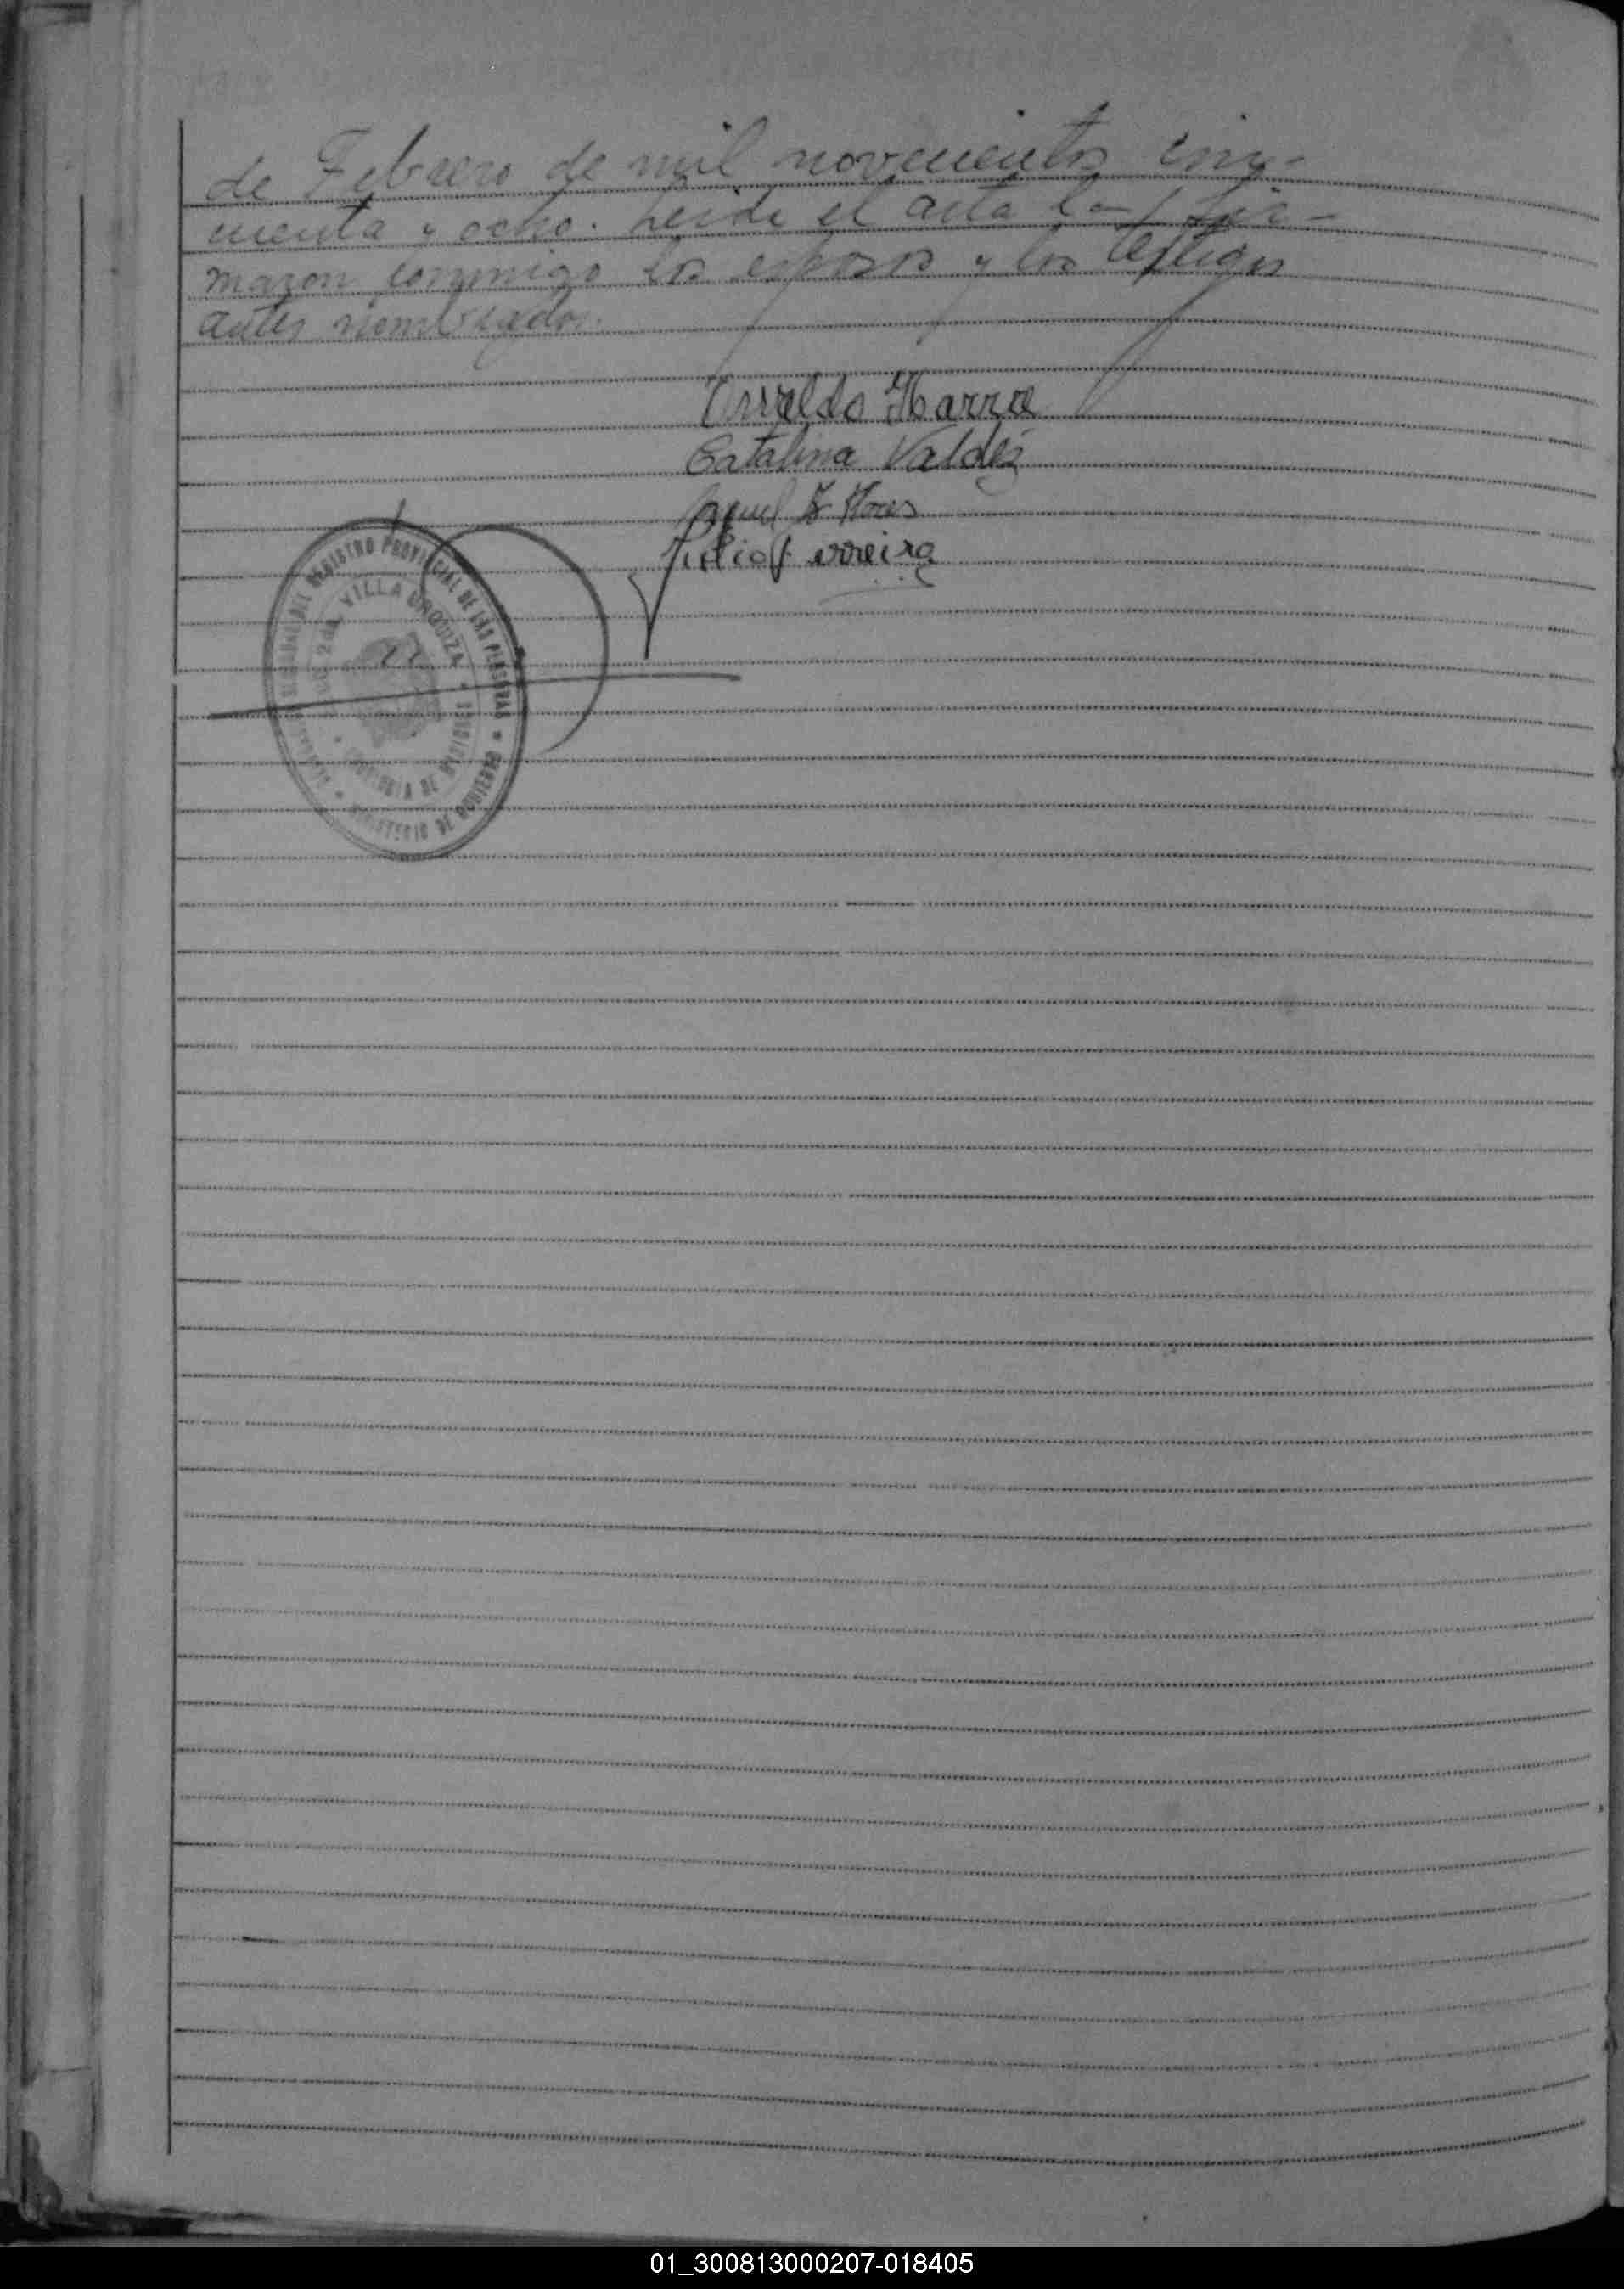 de Febrero de mil novecientos cin-
cuenta y ocho. Leida el acta la fir-
maron conmigo los esposos y los testigos
antes nombrados.
Osvaldo Ibarra
Catalina Valdéz
Flores
Julio Ferreira
REGISTRO PROVINCIAL DE LAS PERSONAS * MINISTERIO DE GOBIERNO *
2da. VILLA URQUIZA
01_300813000207-018405